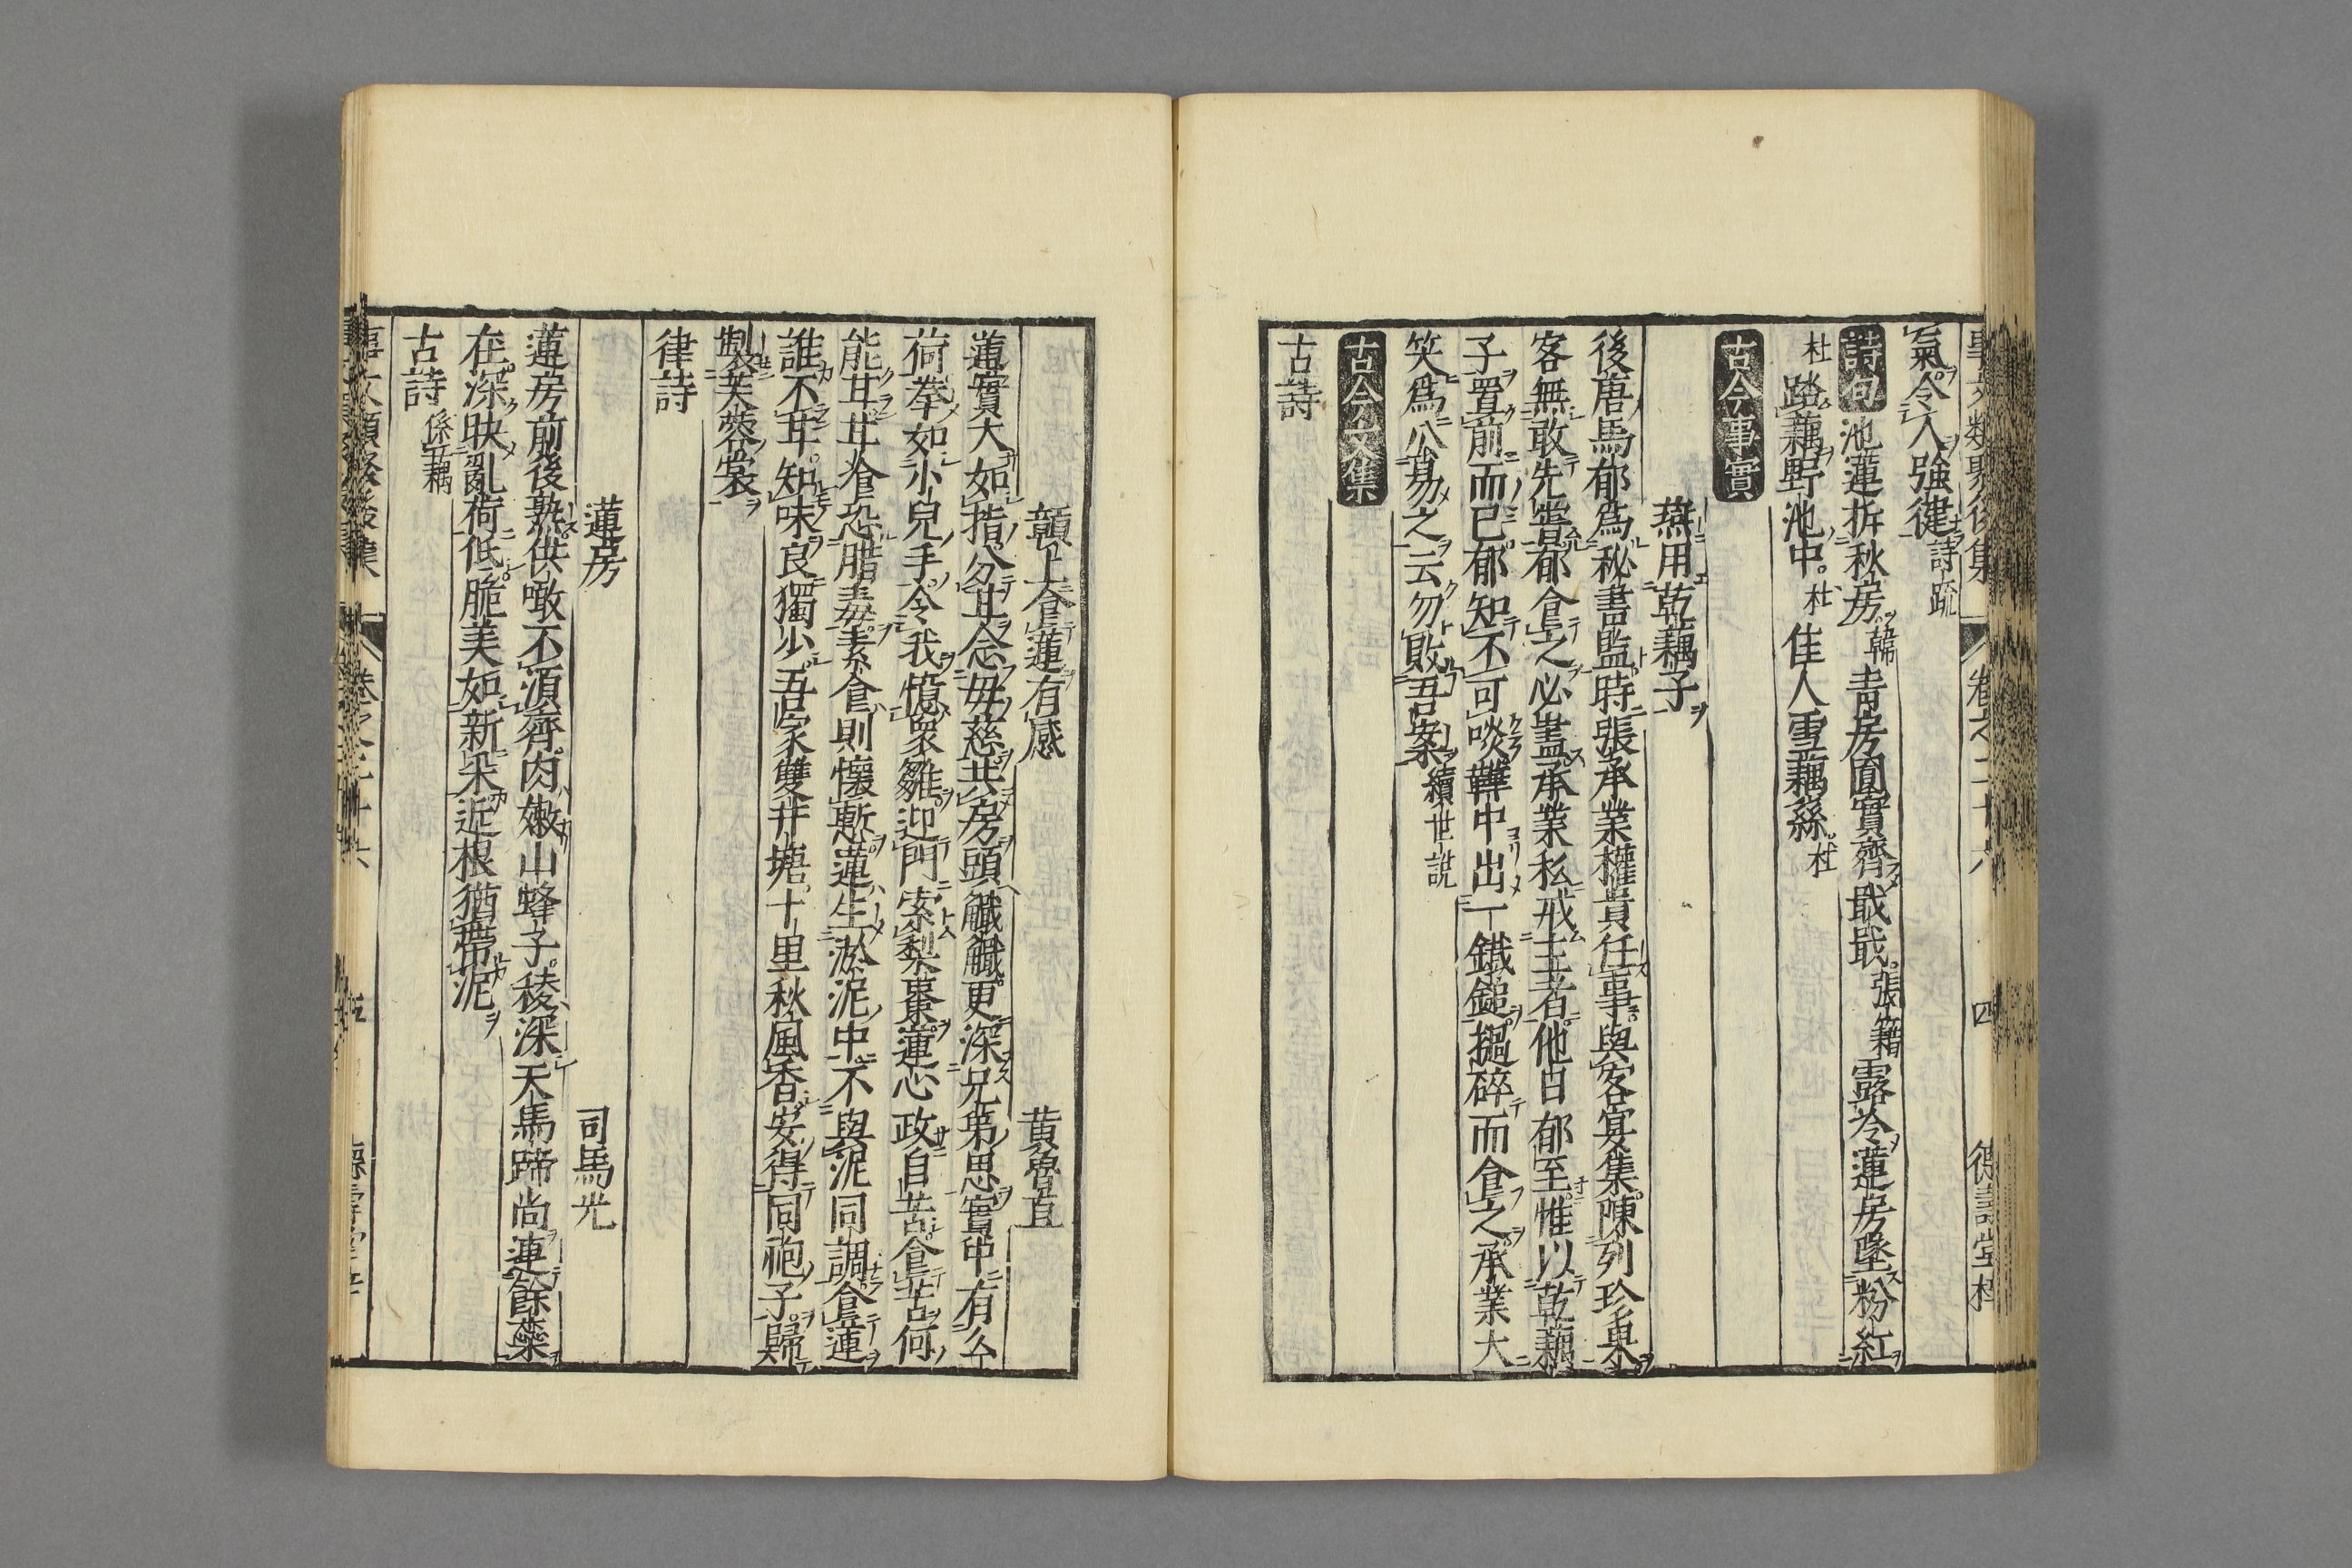 事文類聚後集 卷之二十六 四 德壽堂梓
氣令人強健詩疏
詩句 池蓮拆秋房韓青房圓實齊戢戢張籍露冷蓮房墜粉紅
杜踏藕野池中杜佳人雪藕絲杜
古今事實
燕用乾藕子
後唐馬郁爲秘書監時張承業權貴任事與客宴集陳列珍果
客無敢先嘗郁食之必盡承業私戒主者他日郁至惟以乾藕
子置前而已郁知不可啖鞾中出一鐵鎚撾碎而食之承業大
笑爲公易之云勿敗吾案續世說
古今文集
古詩
贛上食蓮有感 黄魯直
蓮實大如指分甘念母慈共房頭艥艥更深兄弟思實中有么
荷拳如小兒手令我憶衆雛迎門索梨棗蓮心政自苦食苦何
能甘甘飡恐腊毒素食則懷慙蓮生淤泥中不與泥同調食蓮
誰不甘知味良獨少吾家雙井塘十里秋風香安得同袍子歸
製芙蓉裳
律詩
蓮房 司馬光
蓮房前後熟供噉不須齊肉嫩山蜂子稜深天馬蹄尚連餘蘂
在深映亂荷低脆美如新采近根猶帶泥
古詩係藕
事文類聚後集 卷之二十六 五